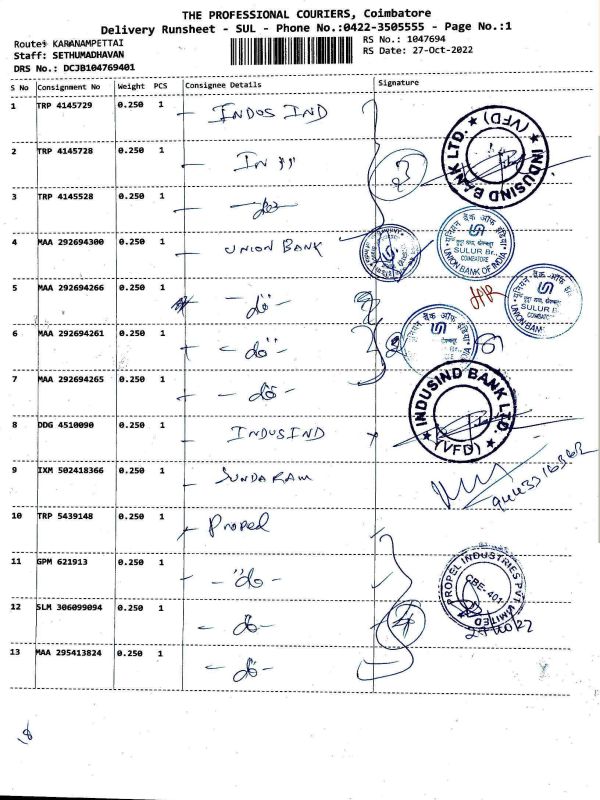 THE PROFESSIONAL COURIERS, Coimbatore
Delivery Runsheet - SUL - Phone No.:0422-3505555 - Page No.:1
Route: KARANAMPETTAI
RS No.: 1047694
Staff: SETHUMADHAVAN
RS Date: 27-Oct-2022
DRS No.: DCJB104769401
S No Consignment No Weight PCS Consignee Details Signature
1 TRP 4145729 0.250 1 - INDUS IND
2 TRP 4145728 0.250 1 - In 〃
3 TRP 4145528 0.250 1 - do
4 MAA 292694300 0.250 1 - UNION BANK
5 MAA 292694266 0.250 1 - do -
6 MAA 292694261 0.250 1 - do -
7 MAA 292694265 0.250 1 - do -
8 DDG 4510090 0.250 1 - INDUSIND
9 IXM 502418366 0.250 1 - SUNDARAM
10 TRP 5439148 0.250 1 - Propel
11 GPM 621913 0.250 1 - do -
12 SLM 306099094 0.250 1 - do -
13 MAA 295413824 0.250 1 - do -
INDUSIND BANK LTD. ★ (VFD) ★
3
यूनियन बैंक ऑफ इंडिया
SULUR Br.
COIMBATORE
UNION BANK OF INDIA
यूनियन बैंक ऑफ इंडिया
SULUR B
COIMBATORE
UNION BANK
INDUSIND BANK LTD. ★ (VFD) ★
PROPEL INDUSTRIES PVT LIMITED
CBE- 401
4